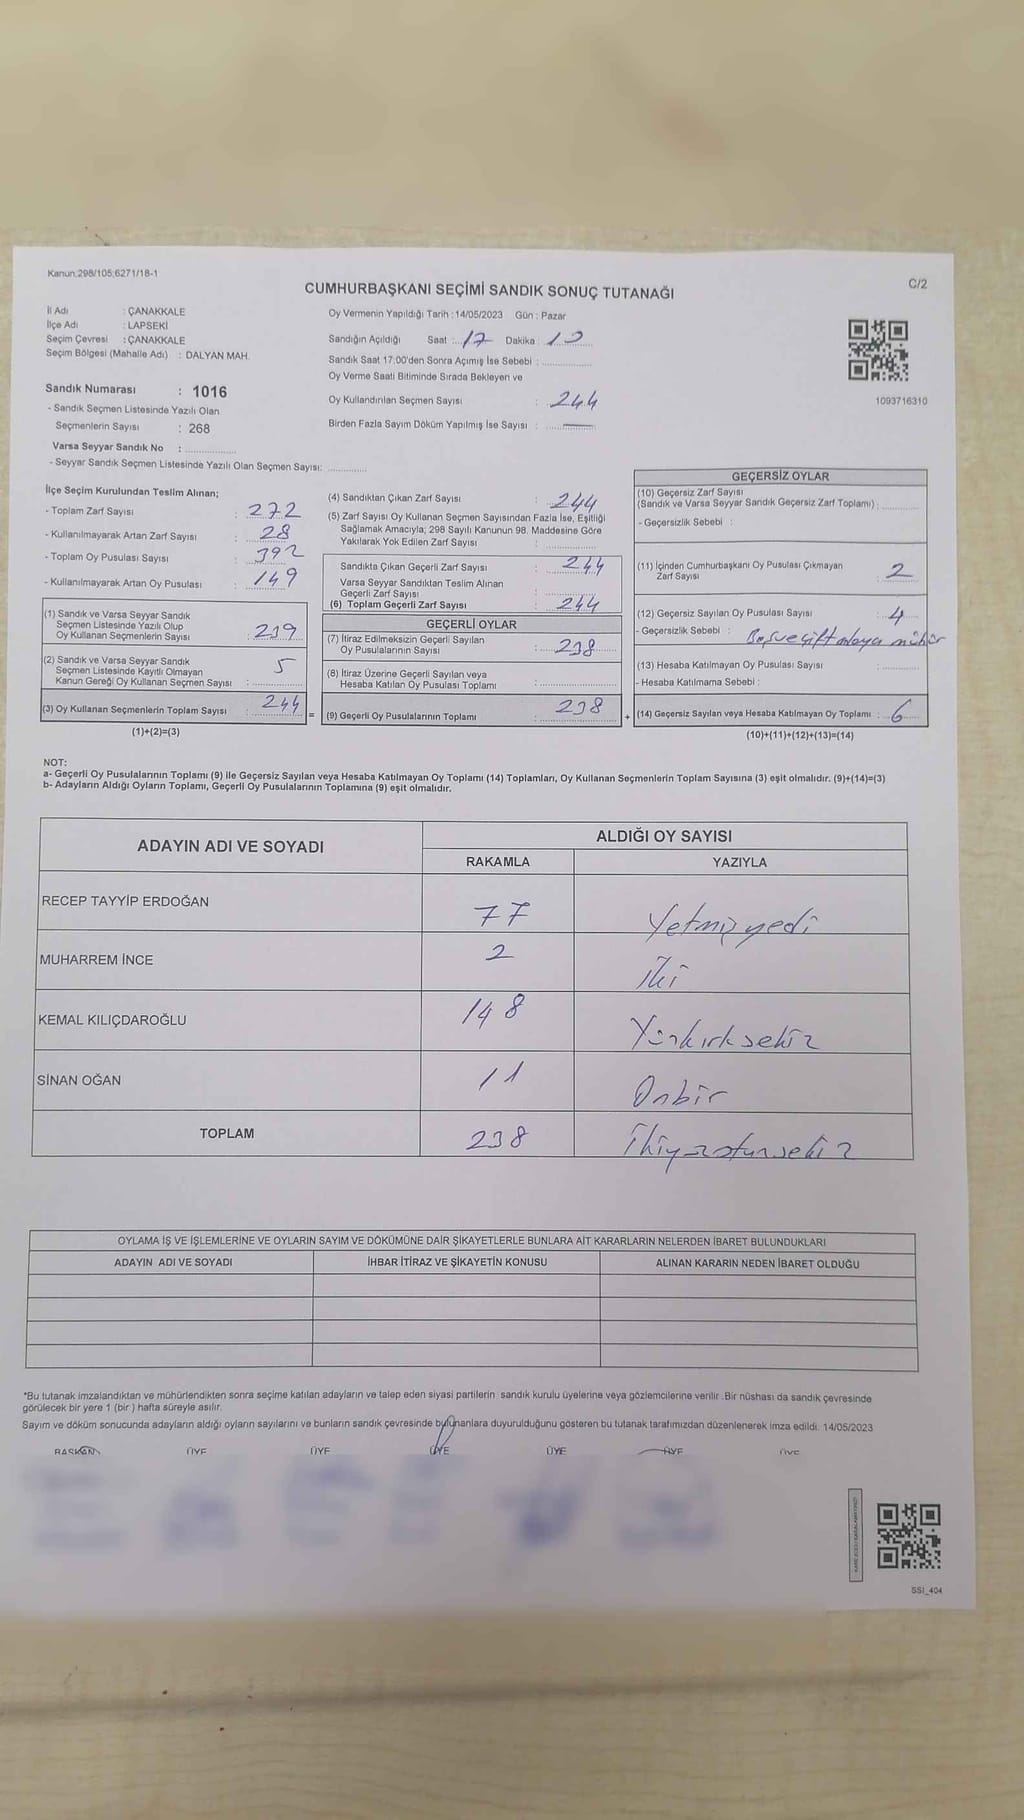 Kanun:298/105;6271/18-1
C/2
CUMHURBAŞKANI SEÇİMİ SANDIK SONUÇ TUTANAĞI
İl Adı : ÇANAKKALE
İlçe Adı : LAPSEKİ
Seçim Çevresi : ÇANAKKALE
Seçim Bölgesi (Mahalle Adı) : DALYAN MAH.
Sandık Numarası : 1016
- Sandık Seçmen Listesinde Yazılı Olan
Seçmenlerin Sayısı : 268
Varsa Seyyar Sandık No :
- Seyyar Sandık Seçmen Listesinde Yazılı Olan Seçmen Sayısı:
Oy Vermenin Yapıldığı Tarih :14/05/2023 Gün : Pazar
Sandığın Açıldığı Saat : 17 Dakika : 10
Sandık Saat 17:00'den Sonra Açımış İse Sebebi :
Oy Verme Saati Bitiminde Sırada Bekleyen ve
Oy Kullandırılan Seçmen Sayısı : 244
Birden Fazla Sayım Döküm Yapılmış İse Sayısı : —
1093716310
İlçe Seçim Kurulundan Teslim Alınan;
- Toplam Zarf Sayısı : 272
- Kullanılmayarak Artan Zarf Sayısı : 28
- Toplam Oy Pusulası Sayısı : 392
- Kullanılmayarak Artan Oy Pusulası : 149
(1) Sandık ve Varsa Seyyar Sandık
Seçmen Listesinde Yazılı Olup
Oy Kullanan Seçmenlerin Sayısı : 239
(2) Sandık ve Varsa Seyyar Sandık
Seçmen Listesinde Kayıtlı Olmayan
Kanun Gereği Oy Kullanan Seçmen Sayısı : 5
(3) Oy Kullanan Seçmenlerin Toplam Sayısı : 244
(1)+(2)=(3)
(4) Sandıktan Çıkan Zarf Sayısı : 244
(5) Zarf Sayısı Oy Kullanan Seçmen Sayısından Fazla İse, Eşitliği
Sağlamak Amacıyla; 298 Sayılı Kanunun 98. Maddesine Göre
Yakılarak Yok Edilen Zarf Sayısı :
Sandıkta Çıkan Geçerli Zarf Sayısı : 244
Varsa Seyyar Sandıktan Teslim Alınan
Geçerli Zarf Sayısı :
(6) Toplam Geçerli Zarf Sayısı : 244
GEÇERLİ OYLAR
(7) İtiraz Edilmeksizin Geçerli Sayılan
Oy Pusulalarının Sayısı : 238
(8) İtiraz Üzerine Geçerli Sayılan veya
Hesaba Katılan Oy Pusulası Toplamı :
= (9) Geçerli Oy Pusulalarının Toplamı : 238
GEÇERSİZ OYLAR
(10) Geçersiz Zarf Sayısı
(Sandık ve Varsa Seyyar Sandık Geçersiz Zarf Toplamı) :
- Geçersizlik Sebebi :
(11) İçinden Cumhurbaşkanı Oy Pusulası Çıkmayan
Zarf Sayısı : 2
(12) Geçersiz Sayılan Oy Pusulası Sayısı : 4
- Geçersizlik Sebebi : Boş ve çift adaya mühür
(13) Hesaba Katılmayan Oy Pusulası Sayısı :
- Hesaba Katılmama Sebebi :
+ (14) Geçersiz Sayılan veya Hesaba Katılmayan Oy Toplamı : 6
(10)+(11)+(12)+(13)=(14)
NOT:
a- Geçerli Oy Pusulalarının Toplamı (9) ile Geçersiz Sayılan veya Hesaba Katılmayan Oy Toplamı (14) Toplamları, Oy Kullanan Seçmenlerin Toplam Sayısına (3) eşit olmalıdır. (9)+(14)=(3)
b- Adayların Aldığı Oyların Toplamı, Geçerli Oy Pusulalarının Toplamına (9) eşit olmalıdır.
ADAYIN ADI VE SOYADI
ALDIĞI OY SAYISI
RAKAMLA YAZIYLA
RECEP TAYYİP ERDOĞAN 77 Yetmişyedi
MUHARREM İNCE 2 İki
KEMAL KILIÇDAROĞLU 148 Yüzkırksekiz
SİNAN OĞAN 11 Onbir
TOPLAM 238 İkiyüzotuzsekiz
OYLAMA İŞ VE İŞLEMLERİNE VE OYLARIN SAYIM VE DÖKÜMÜNE DAİR ŞİKAYETLERLE BUNLARA AİT KARARLARIN NELERDEN İBARET BULUNDUKLARI
ADAYIN ADI VE SOYADI İHBAR İTİRAZ VE ŞİKAYETİN KONUSU ALINAN KARARIN NEDEN İBARET OLDUĞU
*Bu tutanak imzalandıktan ve mühürlendikten sonra seçime katılan adayların ve talep eden siyasi partilerin sandık kurulu üyelerine veya gözlemcilerine verilir .Bir nüshası da sandık çevresinde
görülecek bir yere 1 (bir ) hafta süreyle asılır.
Sayım ve döküm sonucunda adayların aldığı oyların sayılarını ve bunların sandık çevresinde bulunanlara duyurulduğunu gösteren bu tutanak tarafımızdan düzenlenerek imza edildi. 14/05/2023
BAŞKAN ÜYE ÜYE ÜYE ÜYE ÜYE ÜYE
SSI_404